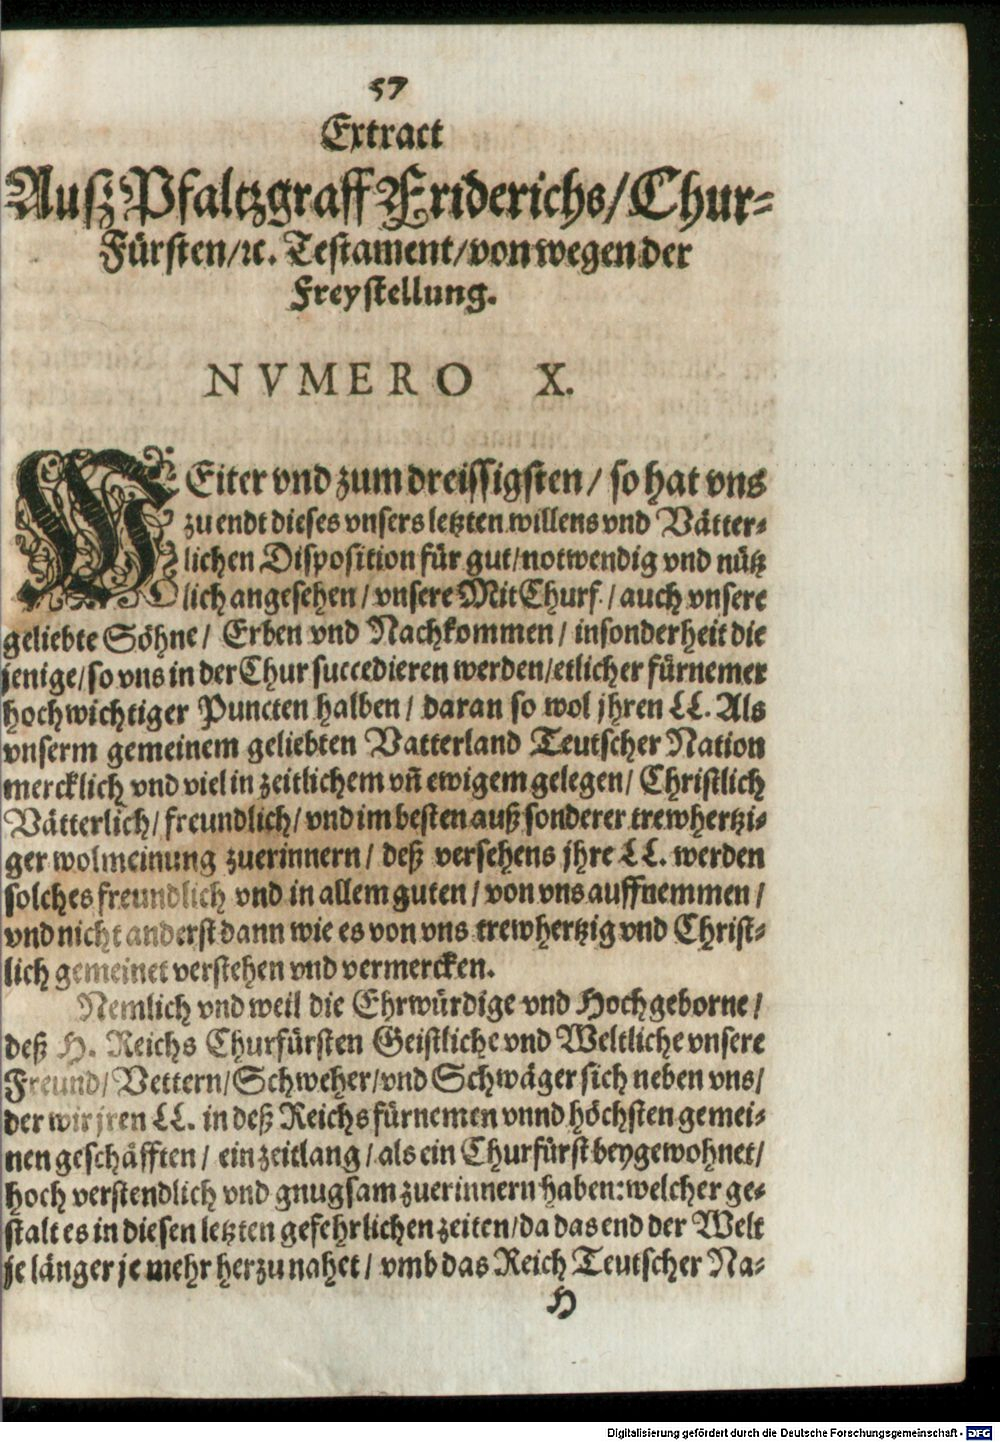 57
Extract
Auß Pfaltzgraff Friderichs/Chur-
Fürsten/ꝛc. Testament/von wegen der
Freystellung.
NVMERO X.
WEiter vnd zum dreissigsten/ so hat vns
zu endt dieses vnsers letzten willens vnd Vätter-
lichen Disposition für gut/notwendig vnd nütz
lich angesehen/vnsere MitChurf./auch vnsere
geliebte Söhne/ Erben vnd Nachkommen/ insonderheit die
jenige/so vns in der Chur succedieren werden/etlicher fürnemer
hochwichtiger Puncten halben/ daran so wol jhren LL. Als
vnserm gemeinem geliebten Vatterland Teutscher Nation
mercklich vnd viel in zeitlichem vñ ewigem gelegen/ Christlich
Vätterlich/freundlich/vnd im besten auß sonderer trewhertzi-
ger wolmeinung zuerinnern/ deß versehens jhre LL. werden
solches freundlich vnd in allem guten/ von vns auffnemmen/
vnd nicht anderst dann wie es von vns trewhertzig vnd Christ-
lich gemeinet verstehen vnd vermercken.
Nemlich vnd weil die Ehrwürdige vnd Hochgeborne/
deß H. Reichs Churfürsten Geistliche vnd Weltliche vnsere
Freund/Vettern/Schweher/vnd Schwäger sich neben vns/
der wir jren LL. in deß Reichs fürnemen vnnd höchsten gemei-
nen geschäfften/ ein zeitlang/als ein Churfürst beygewohnet/
hoch verstendlich vnd gnugsam zuerinnern haben: welcher ge-
stalt es in diesen letzten gefehrlichen zeiten/da das end der Welt
je länger je mehr herzu nahet/ vmb das Reich Teutscher Na-
H
Digitalisierung gefördert durch die Deutsche Forschungsgemeinschaft - DFG